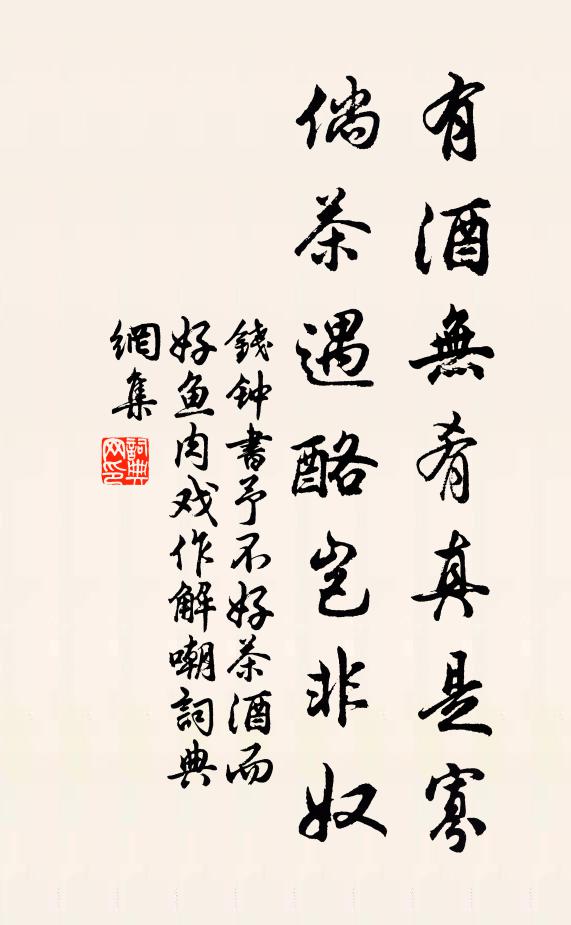 有酒無肴真是寡
倘茶遇酪岂非奴
錢钟書予不好茶酒而
好鱼肉戏作解嘲詞典
網集
詞典網印